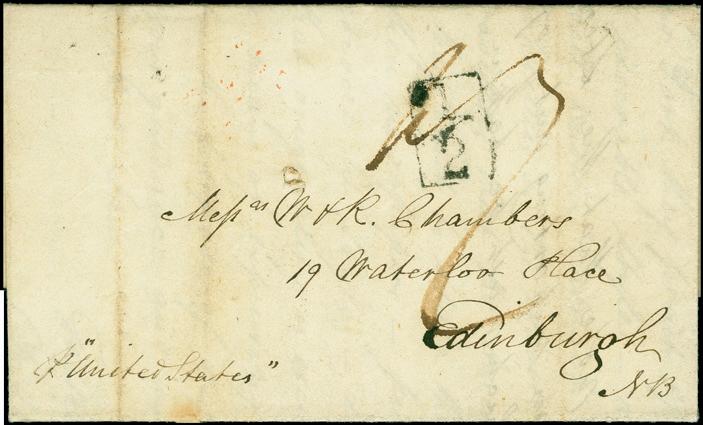 1
2
Messrs W & R. Chambers
19 Waterloo Place
Edinburgh
NB
p "United States"